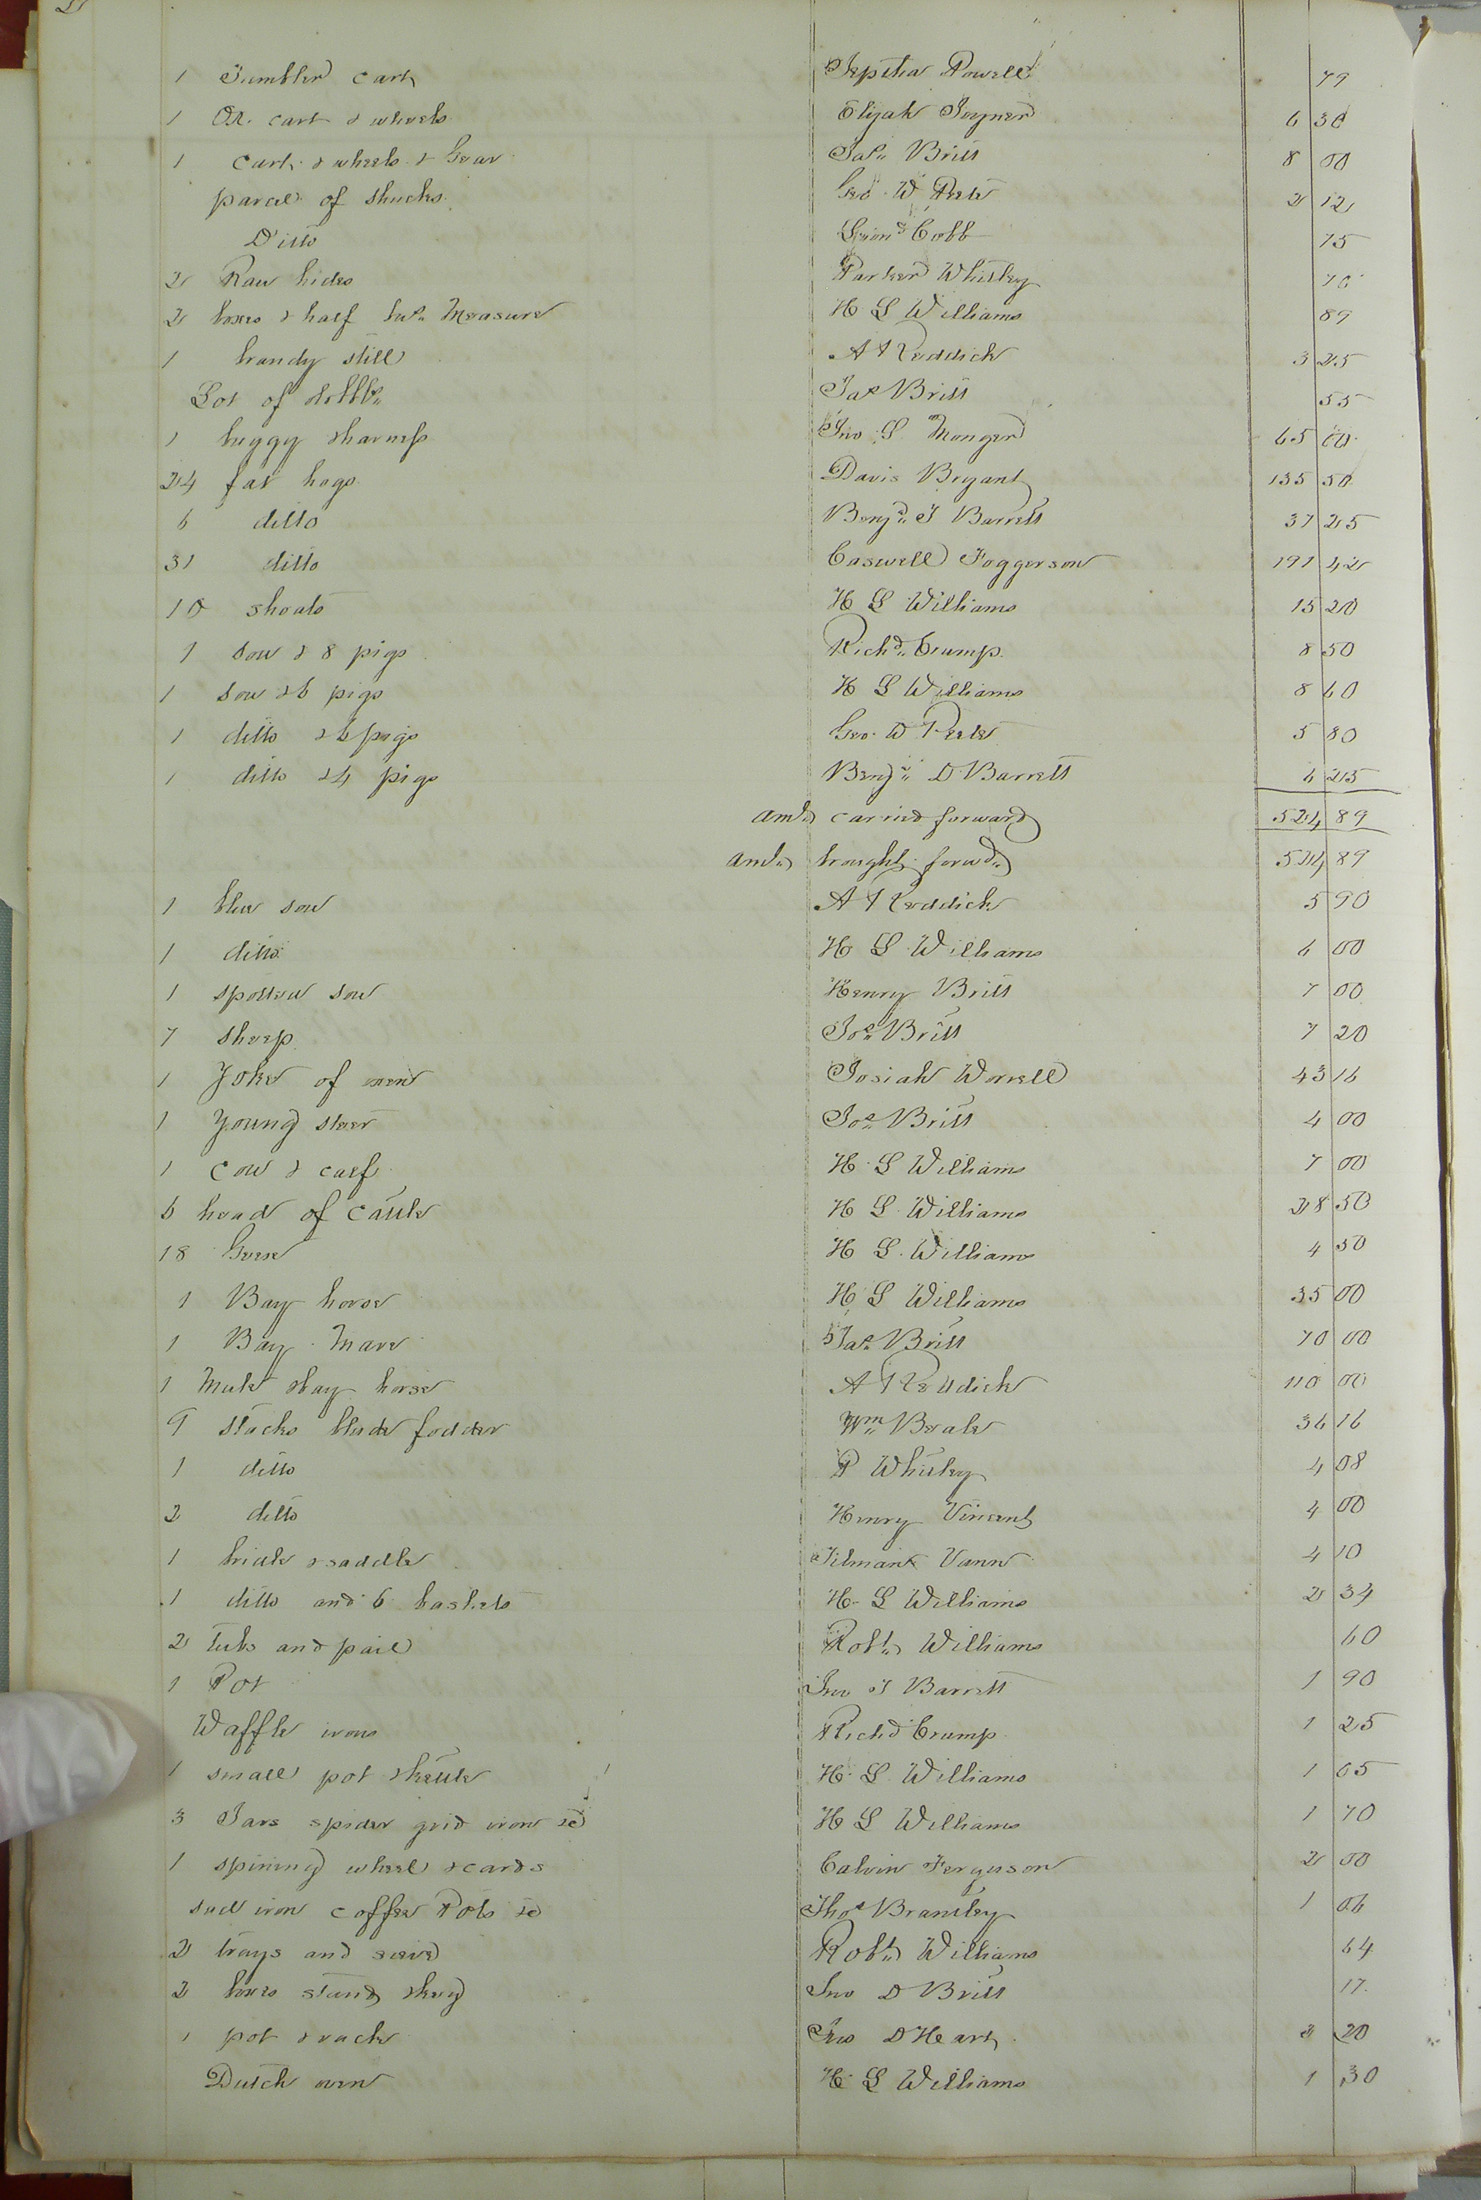 1 Tumbler cart Jeptha Powell 79
1 Ox cart & wheels Elijah Joyner 6 30
1 Cart & wheels & Gear Jas Britt 8 00
parcel of shucks Geo W Peete 2 12
Ditto Cobb 75
2 Raw hides Parker Whitley 70
2 boxes & half bus Measure H L Williams 89
1 brandy still A Reddick 3 25
Lot of Jas Britt 55
1 buggy & harness Jno S Monger 65 00
24 fat hogs Davis Bryant 135 50
6 ditto Benjn J Barrett 37 25
31 ditto Caswell Foggerson 191 42
10 shoats H L Williams 15 20
1 Sow & 8 pigs Richd Crump 8 50
1 Sow & 6 pigs H L Williams 8 60
1 ditto & 6 pigs Geo W Peete 5 80
1 ditto & 4 pigs Benjn D Barrett 6 25
amt carried forward 524 89
amt brought forwd 524 89
1 blue sow A Reddick 5 90
1 ditto H L Williams 6 00
1 spotted sow Henry Britt 7 00
7 sheep Jos Britt 7 20
1 Yoke of oxen Josiah Worrell 43 16
1 Young steer Jos Britt 4 00
1 Cow & calf H L Williams 7 00
6 head of Cattle H L Williams 28 50
18 Geese H L Williams 4 50
1 Bay horse H L Williams 35 00
1 Bay Mare Jas Britt 70 00
1 Mule & bay horse A Reddick 110 00
9 stacks blade fodder Wm Beale 36 16
1 ditto P Whitley 4 08
2 ditto Henry Vincent 4 00
1 bridle & saddle Tilman Vann 4 10
1 ditto and 6 baskets H L Williams 2 34
2 Tubs and pail Robt Williams 60
1 Pot Jno J Barrett 1 90
Waffle irons Richd Crump 1 25
1 small pot & kettle H L Williams 1 05
3 Jars spider grid iron &c H L Williams 1 70
1 spining wheel & cards Calvin Ferguson 2 00
sad iron coffee Pots &c Thos Brantley 1 06
2 trays and sieve Robt Williams 64
2 boxes stand & keg Jno D Britt 17
1 pot & rack Jno D Heart 2 20
Dutch oven H L Williams 1 30